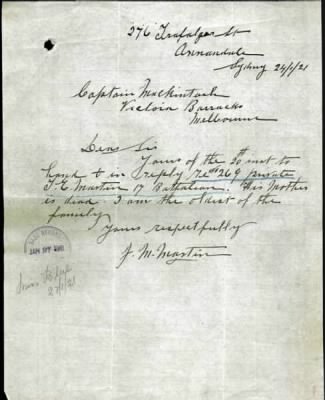 276 Trafalgar St
Annandale
Sydney 24/1/21
Captain Mackintosh
Victoria Barracks
Melbourne
Dear Sir
Yours of the 20 inst to
hand & in reply re No 269 private
T. E. Martin 17 Battalion. This Mother
is dead. I am the oldest of the
family
Yours respectfully
J. M. Martin
27/1/21